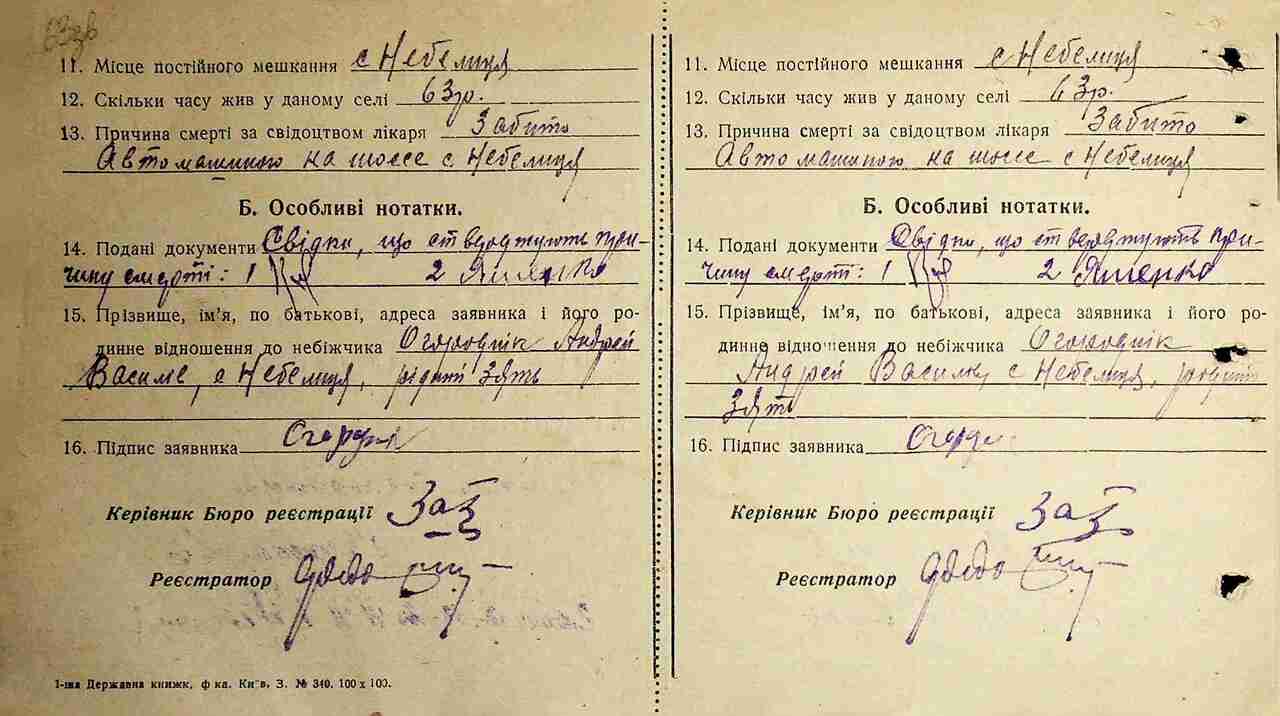 63зв
11. Місце постійного мешкання с Небелиця
12. Скільки часу жив у даному селі 63р.
13. Причина смерті за свідоцтвом лікаря Забито
Автомашиною на шоссе с Небелиця
Б. Особливі нотатки.
14. Подані документи Свідки, що стверджують при-
чину смерті: 1 2 Яшенко
15. Прізвище, ім'я, по батькові, адреса заявника і його ро-
динне відношення до небіжчика Огородпік Андрей
Василе, с Небелиця, рідний зять
16. Підпис заявника
Керівник Бюро реєстрації Заг
Реєстратор
1-ша Державна книжк. ф-ка. Київ. З. № 340. 100 х 100.
11. Місце постійного мешкання с Небелиця
12. Скільки часу жив у даному селі 63р.
13. Причина смерті за свідоцтвом лікаря Забито
Автомашиною на шоссе с Небелиця
Б. Особливі нотатки.
14. Подані документи Свідки, що стверджують при-
чину смерті: 1 2 Яшенко
15. Прізвище, ім'я, по батькові, адреса заявника і його ро-
динне відношення до небіжчика Огородпік
Андрей с Небелиця, рідний
зять
16. Підпис заявника
Керівник Бюро реєстрації Заг
Реєстратор